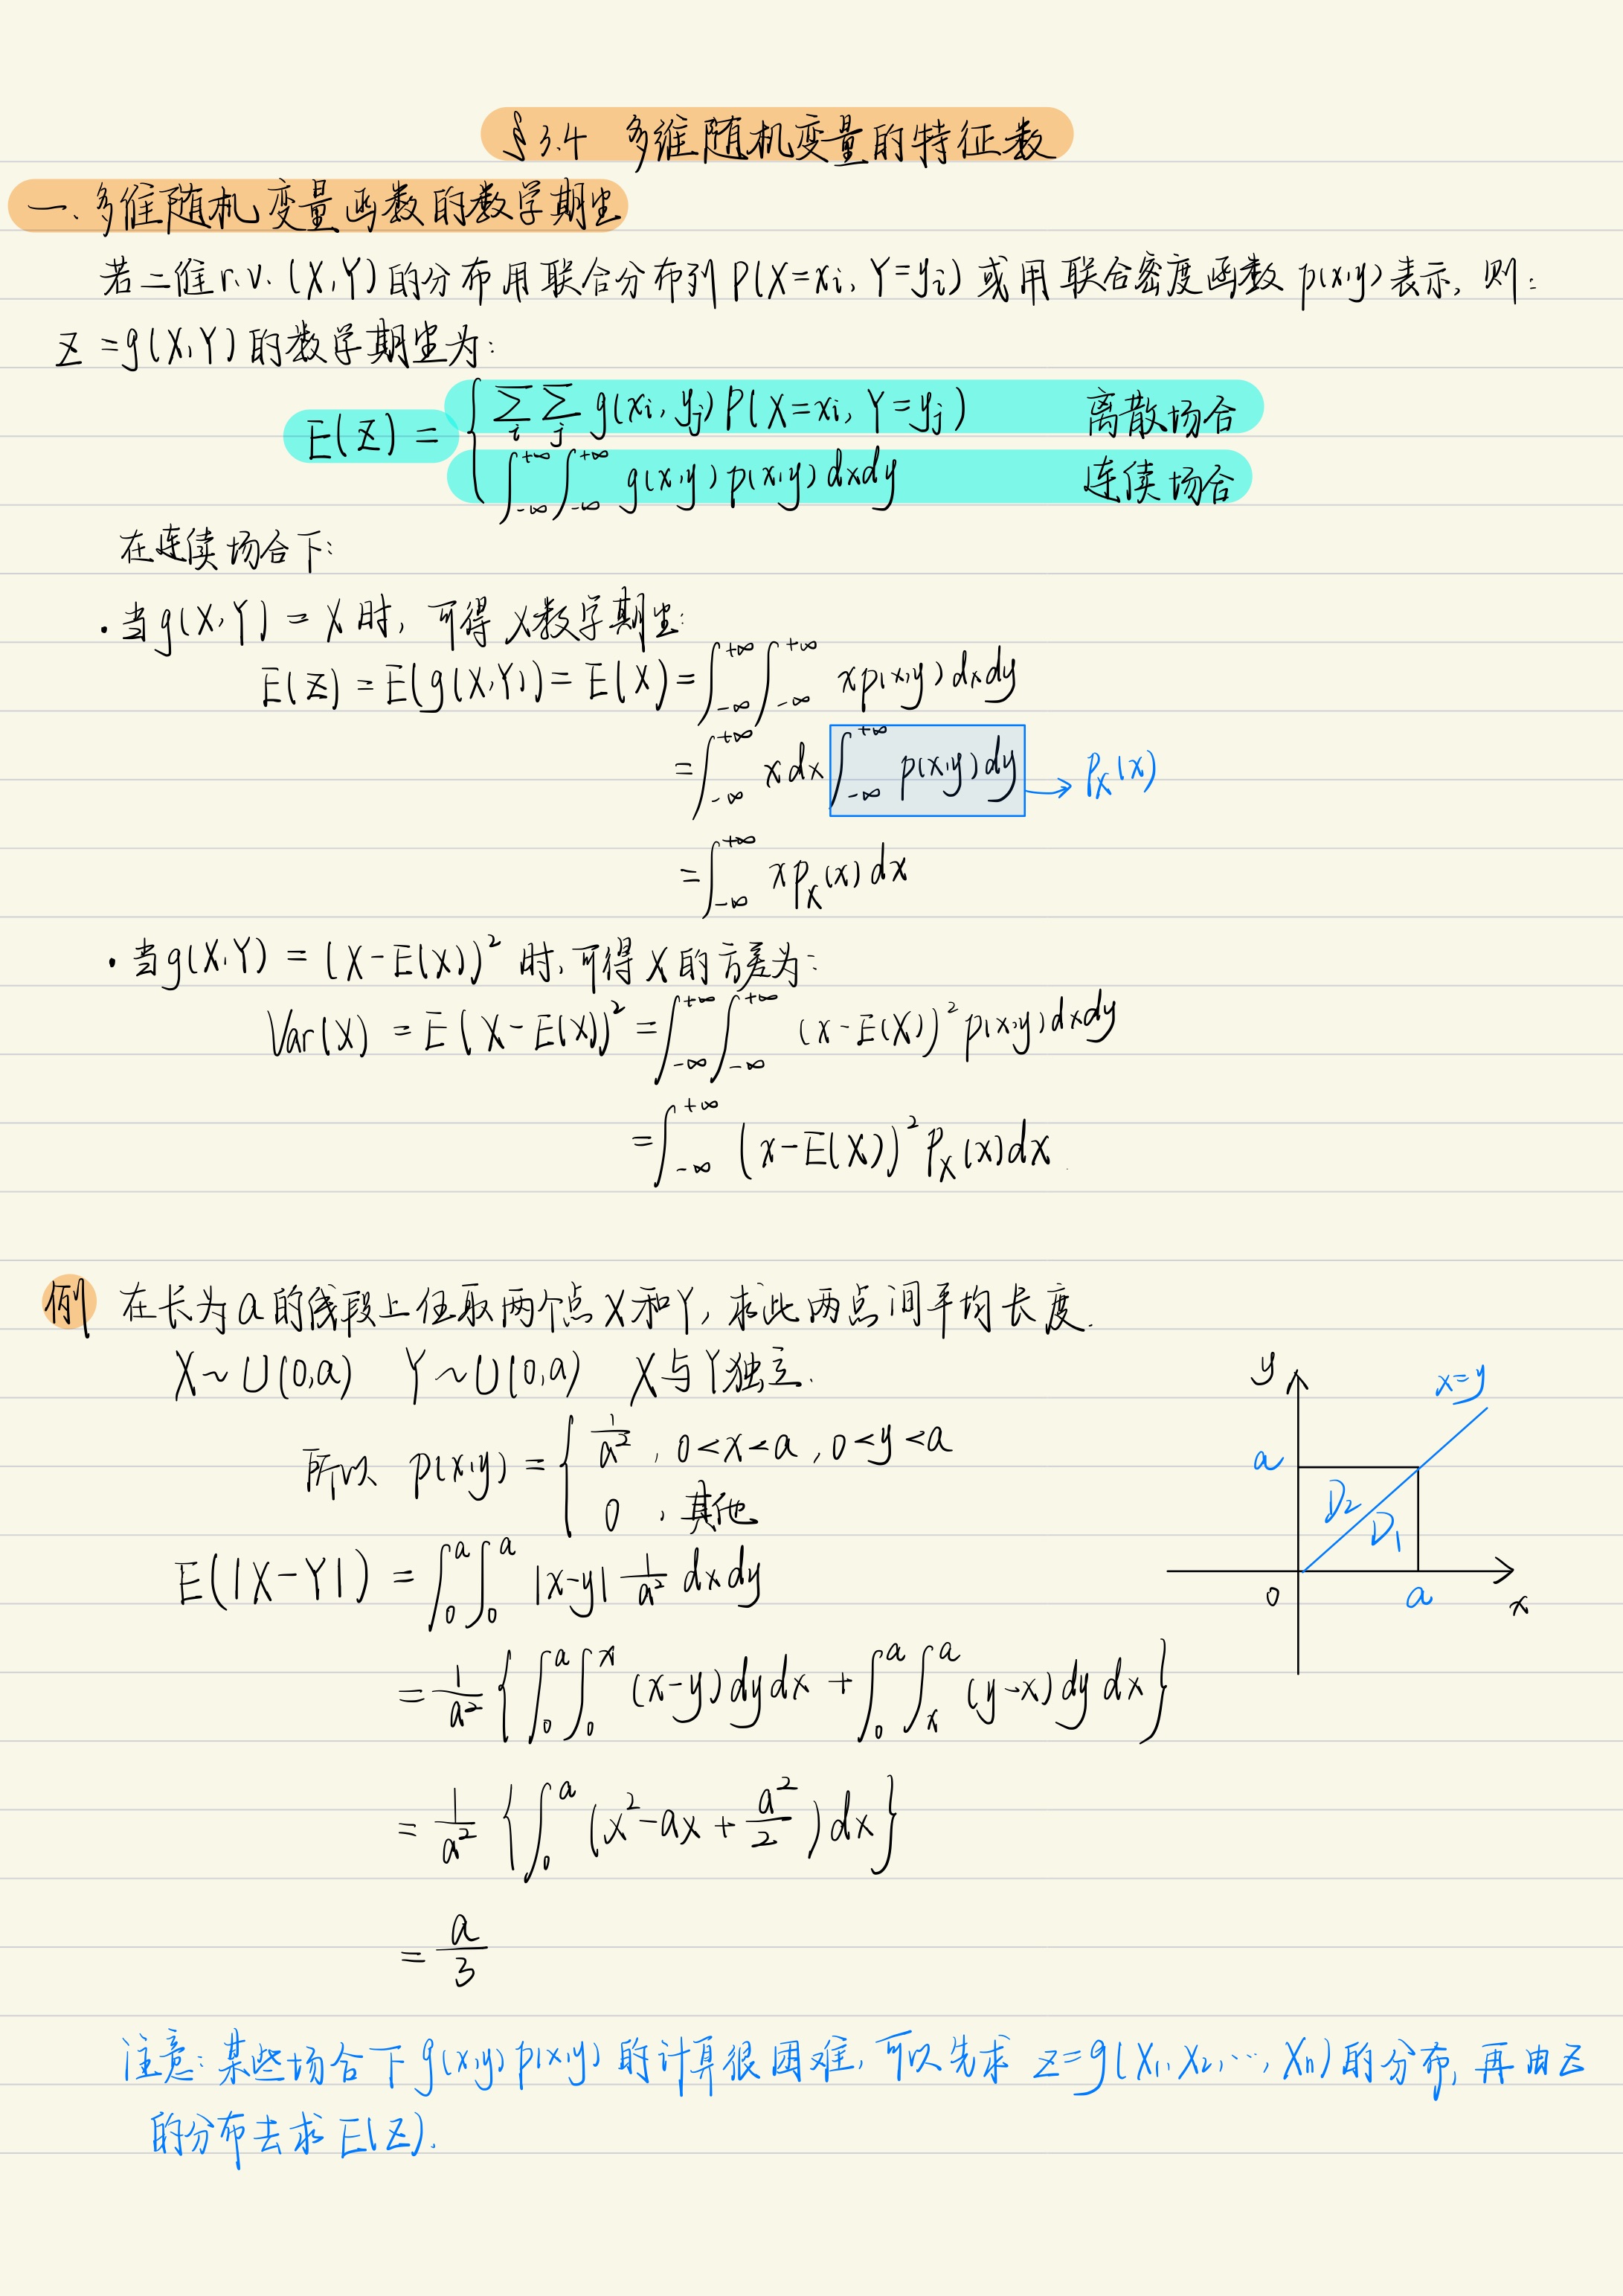 §3.4 多维随机变量的特征数
一、多维随机变量函数的数学期望
若二维r.v.(X,Y)的分布用联合分布列P(X=xi, Y=yj)或用联合密度函数p(x,y)表示, 则:
Z=g(X,Y)的数学期望为:
E(Z) = { ∑i ∑j g(xi, yj) P(X=xi, Y=yj) 离散场合
∫_{-∞}^{+∞} ∫_{-∞}^{+∞} g(x,y) p(x,y) dxdy 连续场合
在连续场合下:
·当g(X,Y) = X时, 可得X数学期望:
E(Z) = E(g(X,Y)) = E(X) = ∫_{-∞}^{+∞} ∫_{-∞}^{+∞} x p(x,y) dxdy
= ∫_{-∞}^{+∞} x dx ∫_{-∞}^{+∞} p(x,y) dy → P_X(x)
= ∫_{-∞}^{+∞} x p_X(x) dx
·当g(X,Y) = (X-E(X))² 时, 可得X的方差为:
Var(X) = E(X-E(X))² = ∫_{-∞}^{+∞} ∫_{-∞}^{+∞} (x-E(X))² p(x,y) dxdy
= ∫_{-∞}^{+∞} (x-E(X))² P_X(x) dx
例 在长为a的线段上任取两个点X和Y, 求此两点间平均长度.
X~U(0,a) Y~U(0,a) X与Y独立.
所以 p(x,y) = { 1/a² , 0<x<a , 0<y<a
0 , 其他
E(|X-Y|) = ∫_0^a ∫_0^a |x-y| 1/a² dxdy
= 1/a² { ∫_0^a ∫_0^x (x-y) dy dx + ∫_0^a ∫_x^a (y-x) dy dx }
= 1/a² { ∫_0^a (x²-ax+a²/2) dx }
= a/3
y
x=y
a
D2
D1
0
a
x
注意: 某些场合下g(x,y) p(x,y)的计算很困难, 可以先求 Z=g(X1, X2, …, Xn)的分布, 再由Z
的分布去求E(Z).